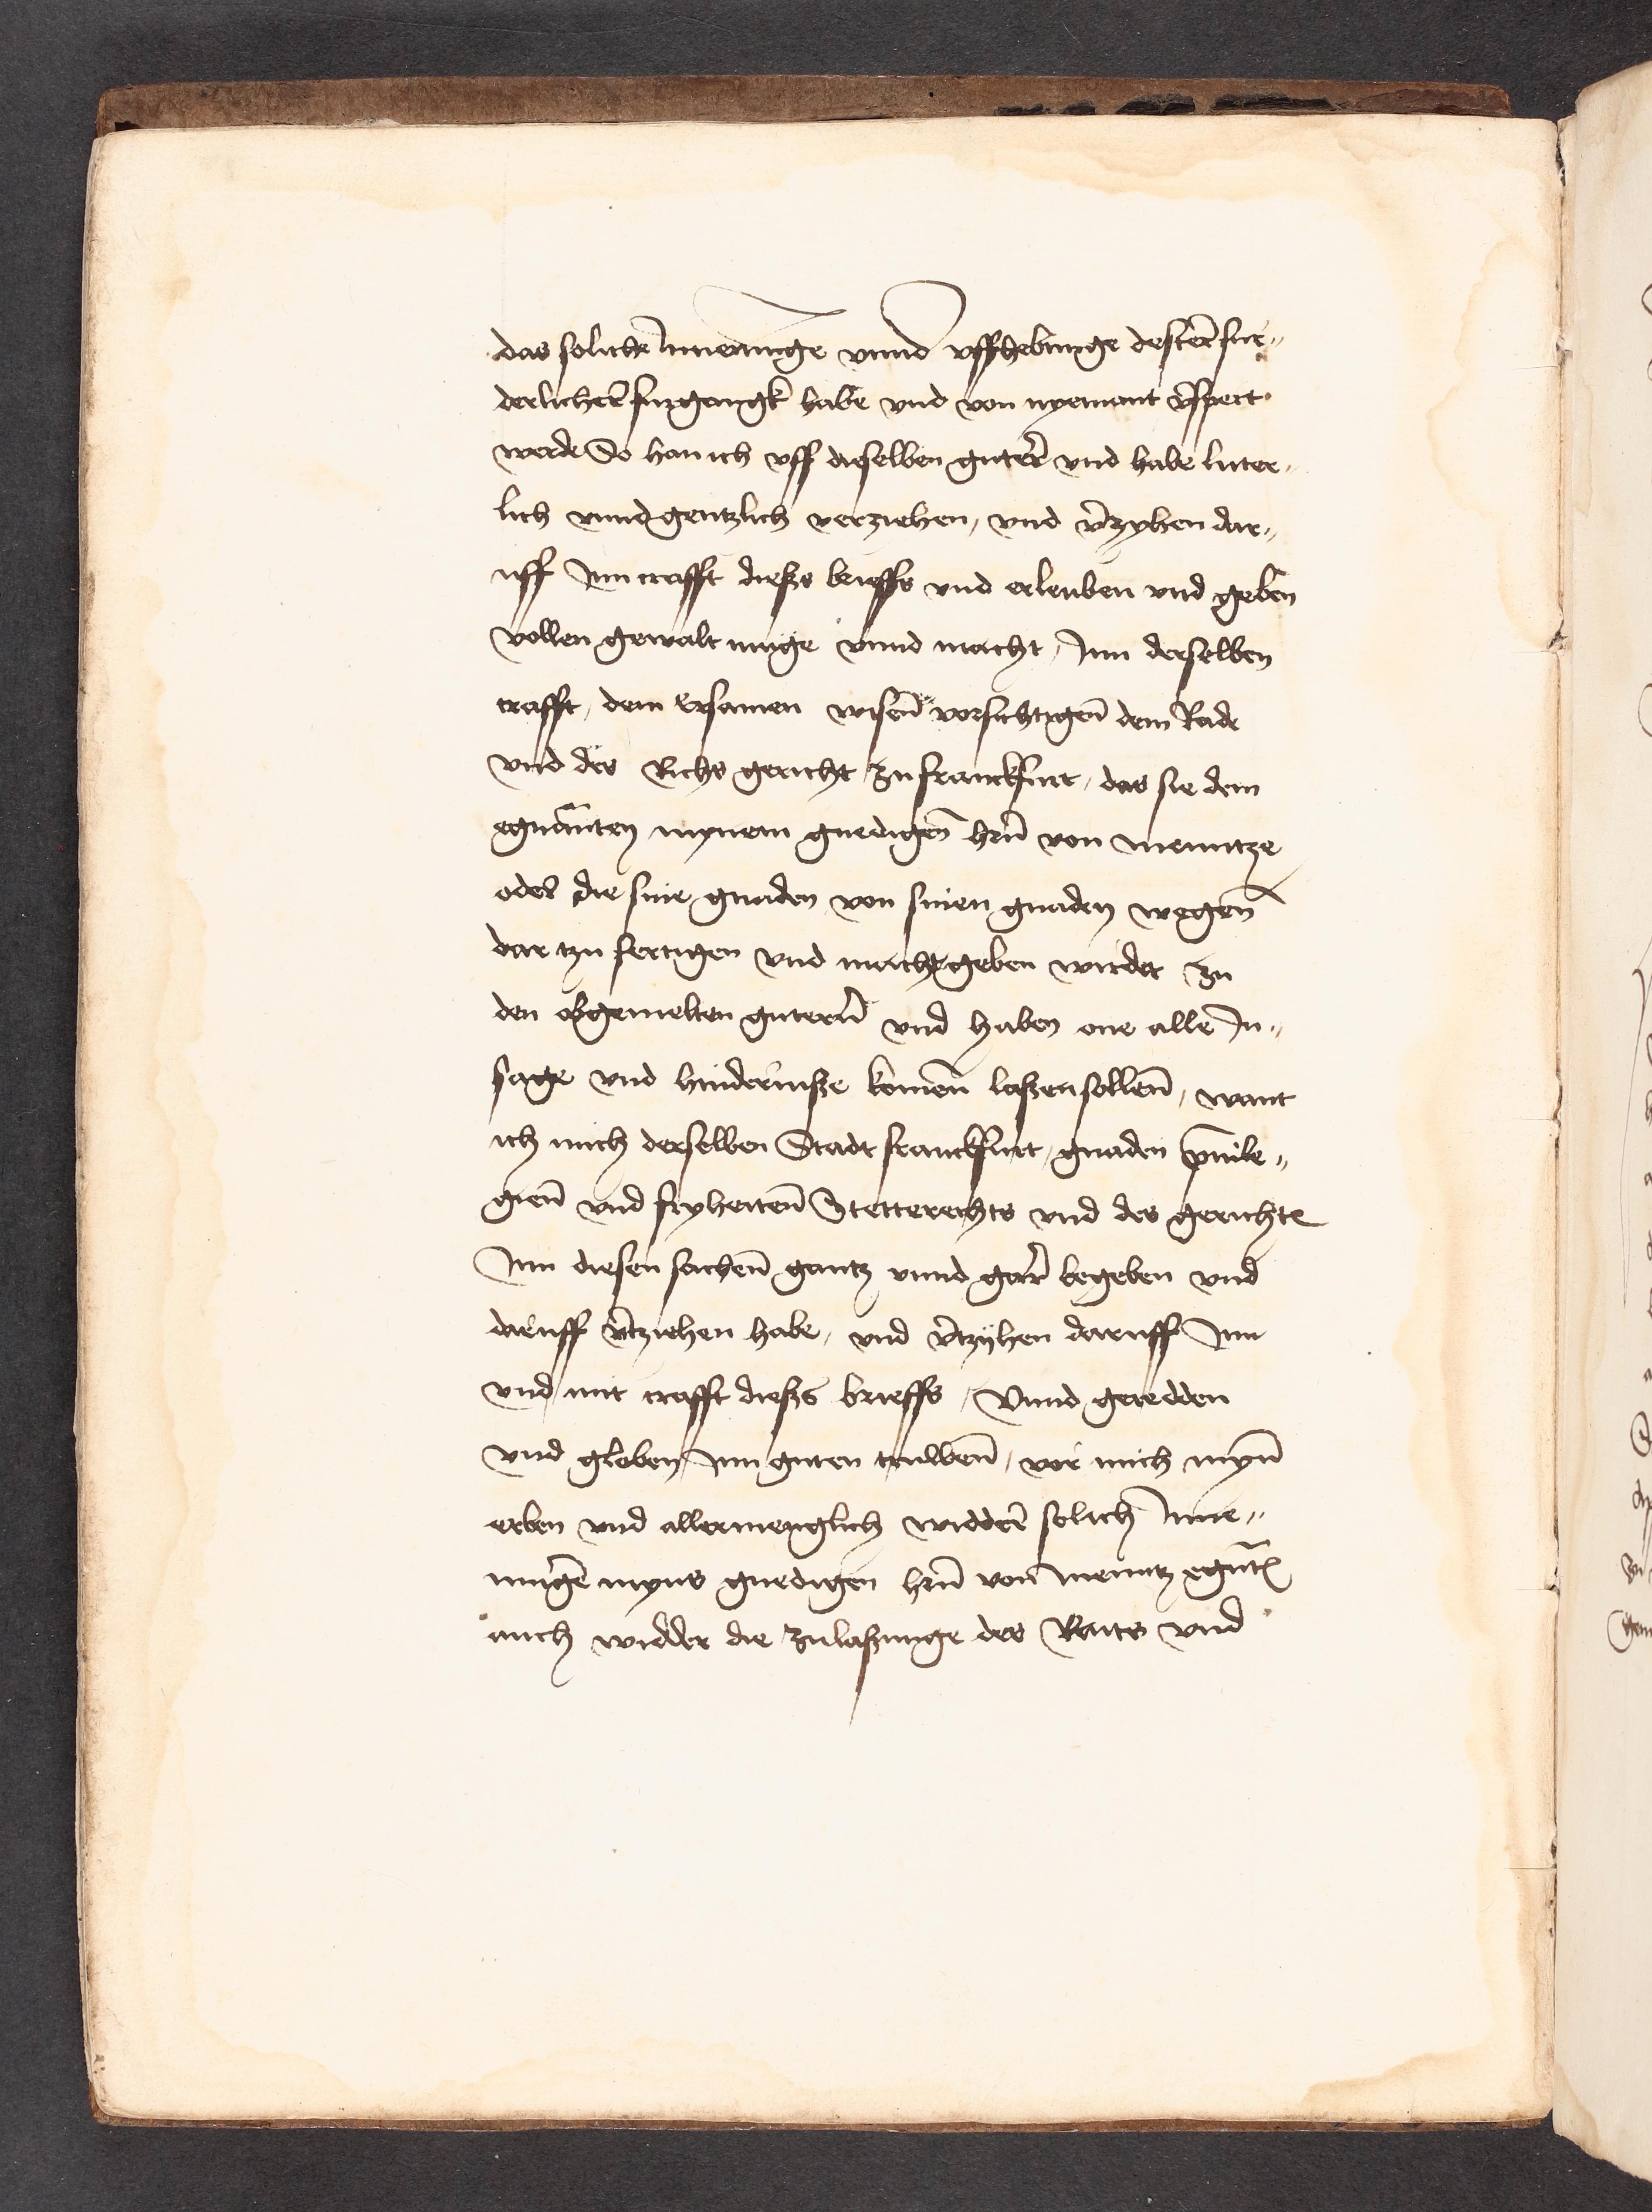 das solich Innemunge vnnd vffhebunge desterr fur„
derlicherr furgangk habe vnd von nyemant v̄spert
werde So han ich vff dieselben guterr vnd habe luter„
lich vnnd gentzlich verziehen, vnd v̄tzyhen dar„
uff Inn crafft dießs brieffs vnd erleuben vnd geben
vollen gewalt muge vnnd macht, Inn derselben
crafft, dem Ersamen wisen̄ vorsichtigen̄ dem Rade
vnd des Richs gericht zu franckfurt, das sie dem
egnan̄ten mynem gnedigen̄ hrn̄ von Menntze
oder die sine gnaden von sinen gnaden wegen̄
dar tzu fertigen vnd macht geben wirdet zu
den obgemelten gutern̄ vnd haben one alle In„
sage vnd hindernisße komen̄ laßen sollen̄, want
ich mich derselben Stadt franckfurt, gnaden p̄uile„
gien̄ vnd fryheiten̄ Stetterechts vnd des gerichts
Inn diesen sachen̄ gantz vnnd garr begeben vnd
daruff v̄tziehen habe, vnd v̄tzÿhen daruff Inn
vnd mit crafft dießs brieffs, Vnnd geredden
vnd globen Inn guten truwen̄, vor mich myn̄
erben vnd allermenglich widder solich Inne„
munge myns gnedigen hrn̄ von Menntz egn̄t
auch widder die zulaßunge des Raits vnd